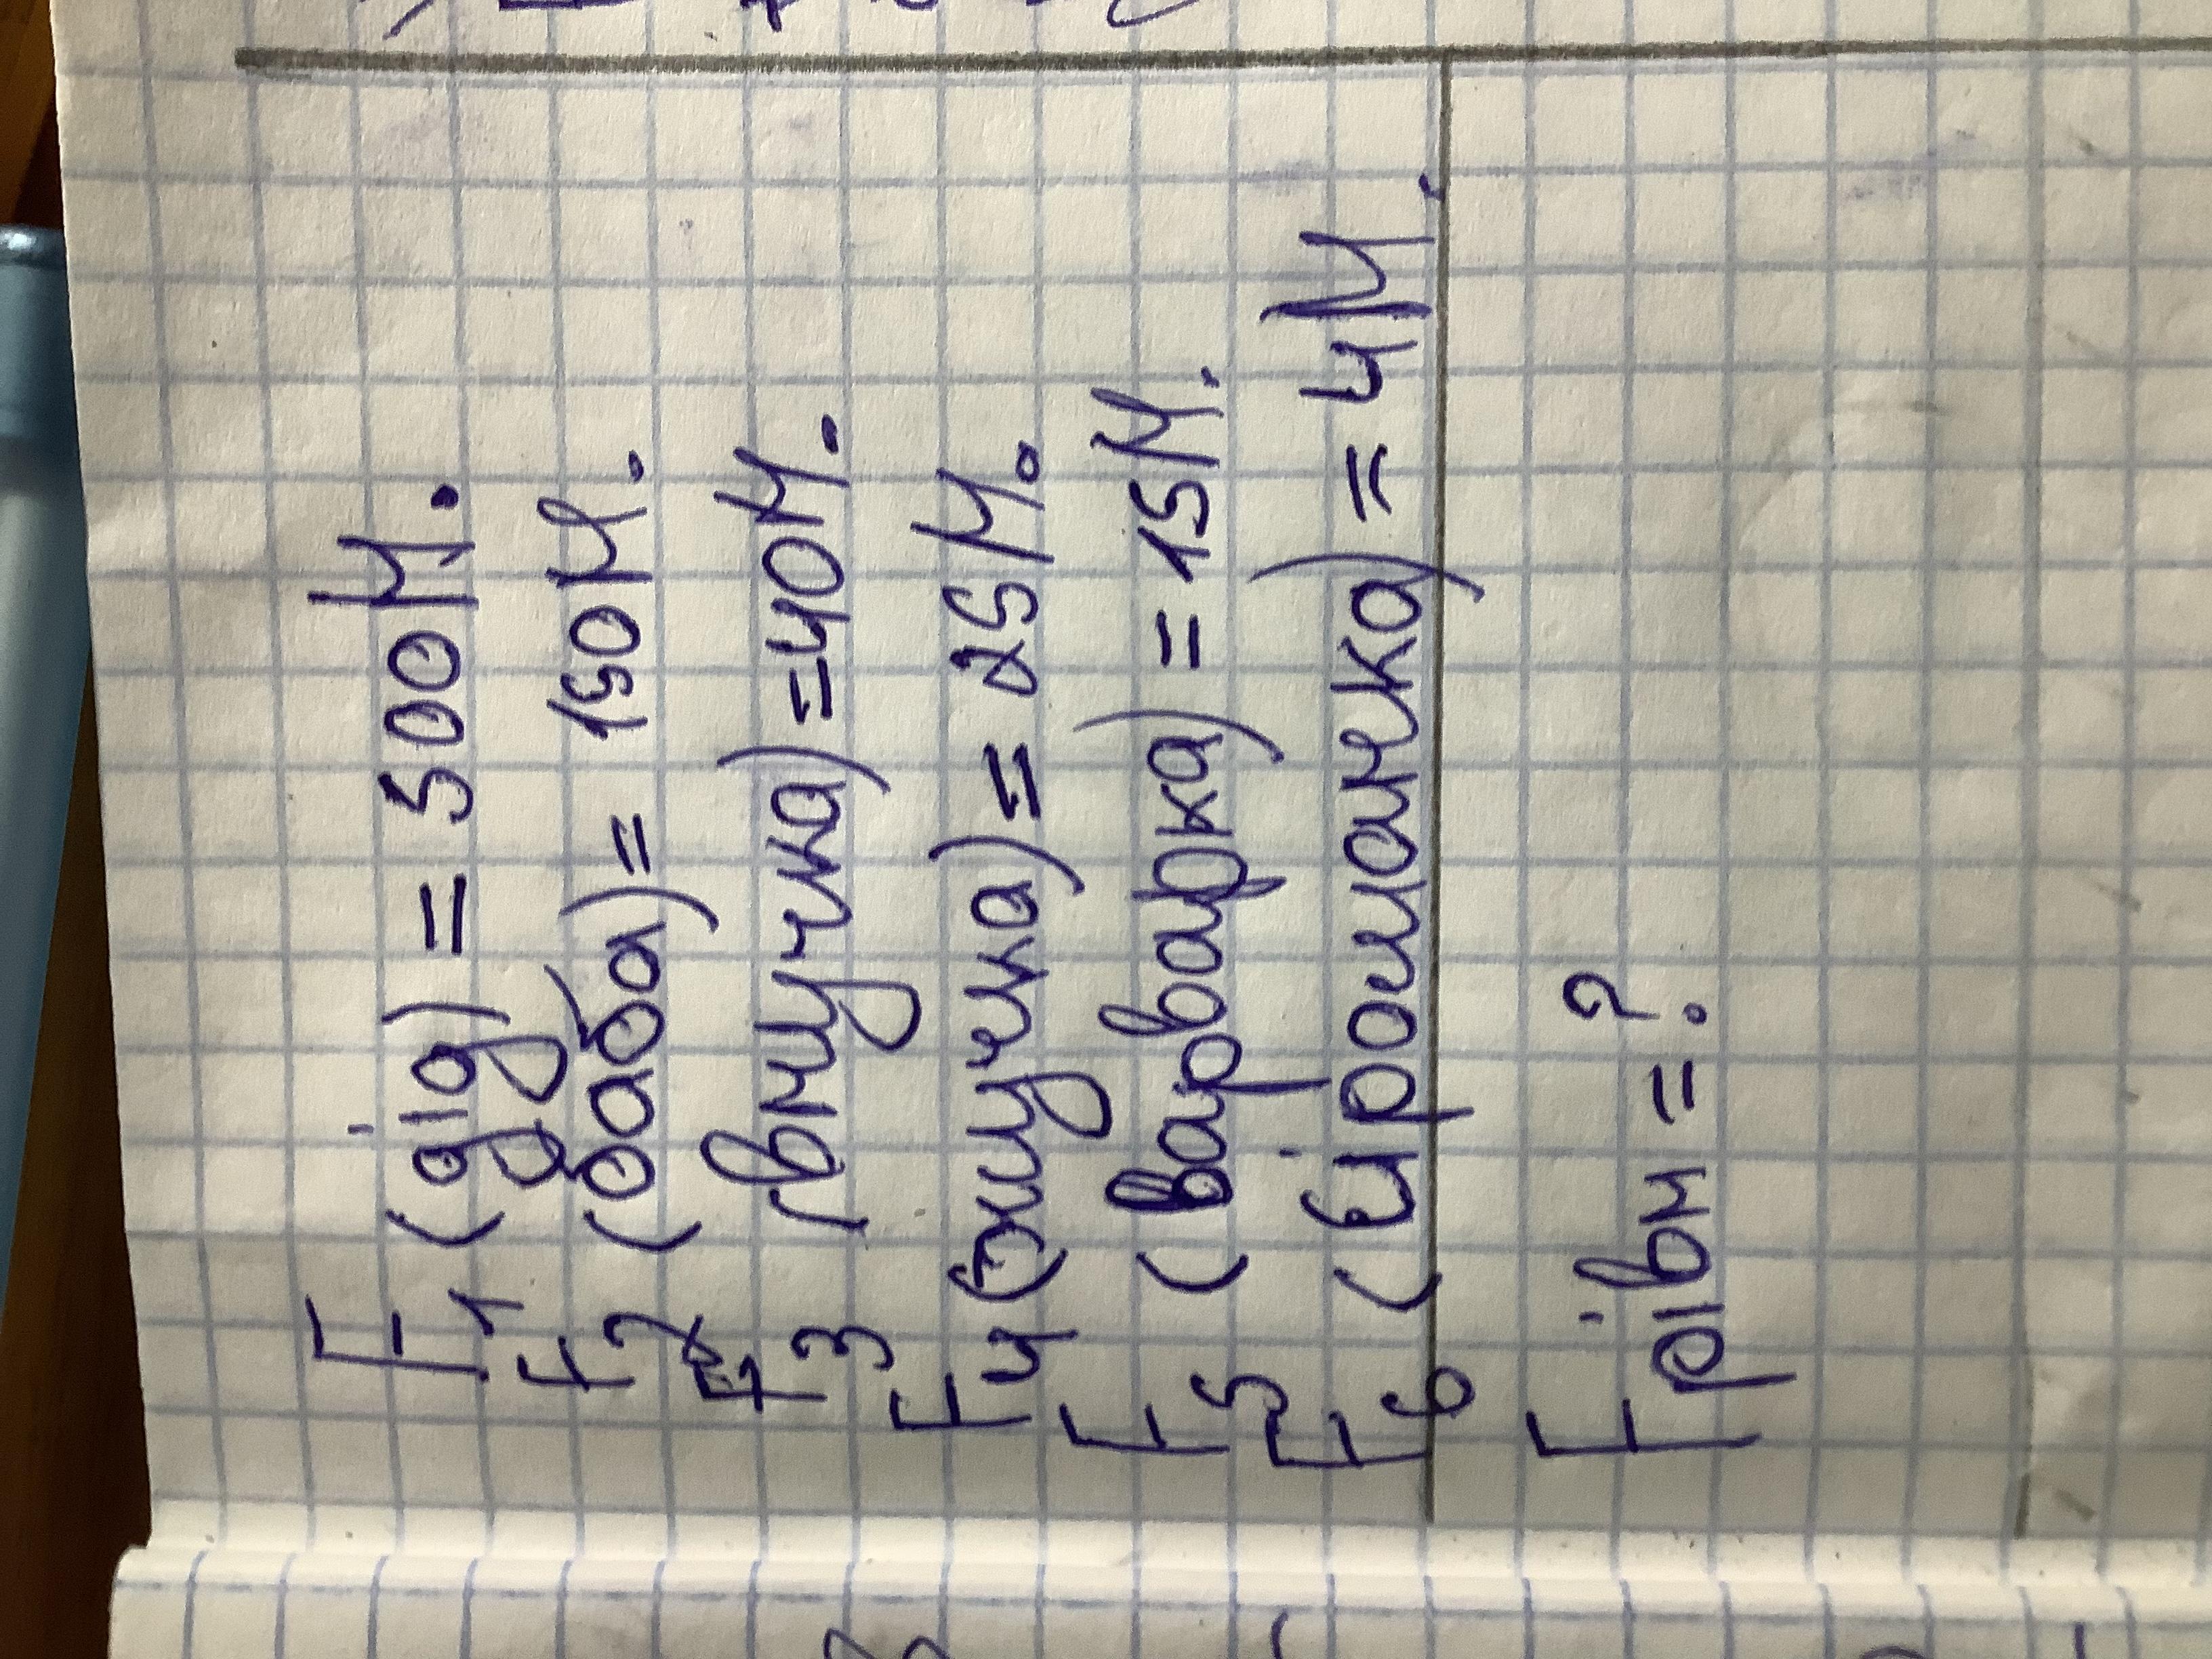 F1 (дід) = 500 Н.
F2 (баба) = 150 Н.
F3 (внучка) = 40 Н.
F4 (жучка) = 25 Н.
F5 (варварка) = 15 Н.
F6 (сірошанка) = 4 Н.
Fрівн = ?